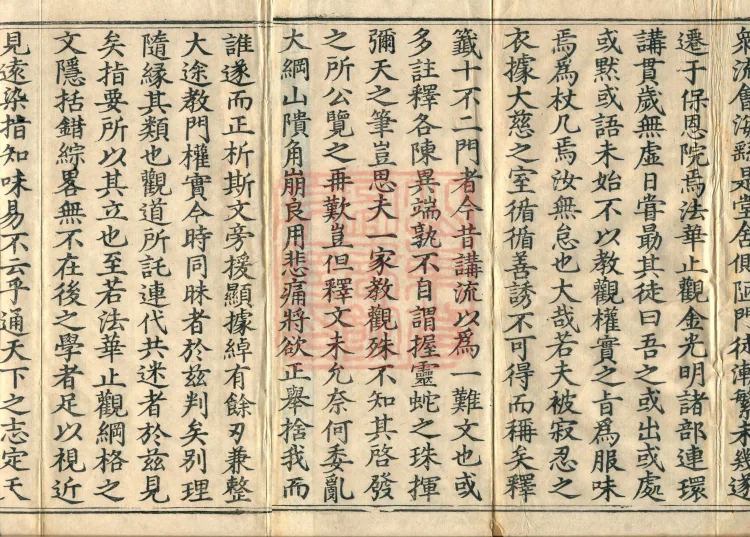 衆流會海繇是堂舍俱陋門徒漸繁未幾遂
遷于保恩院焉法華止觀金光明諸部連環
講貫歲無虛日甞勗其徒曰吾之或出或處
或黙或語未始不以教觀權實之旨爲服味
焉爲杖几焉汝無怠也大哉若夫被寂忍之
衣據大慈之室循循善誘不可得而稱矣釋
籤十不二門者今昔講流以爲一難文也或
多註釋各陳異端孰不自謂握靈蛇之珠揮
彌天之筆豈思夫一家教觀殊不知其啓發
之所公覽之再歎豈但釋文未允奈何委亂
大綱山隤角崩良用悲痛將欲正舉捨我而
誰遂而正析斯文旁援顯據綽有餘刃兼整
大途教門權實今時同昧者於兹判矣别理
隨緣其類也觀道所託連代共迷者於兹見
矣指要所以其立也至若法華止觀綱格之
文隱括錯綜畧無不在後之學者足以視近
見遠染指知味易不云乎通天下之志定天